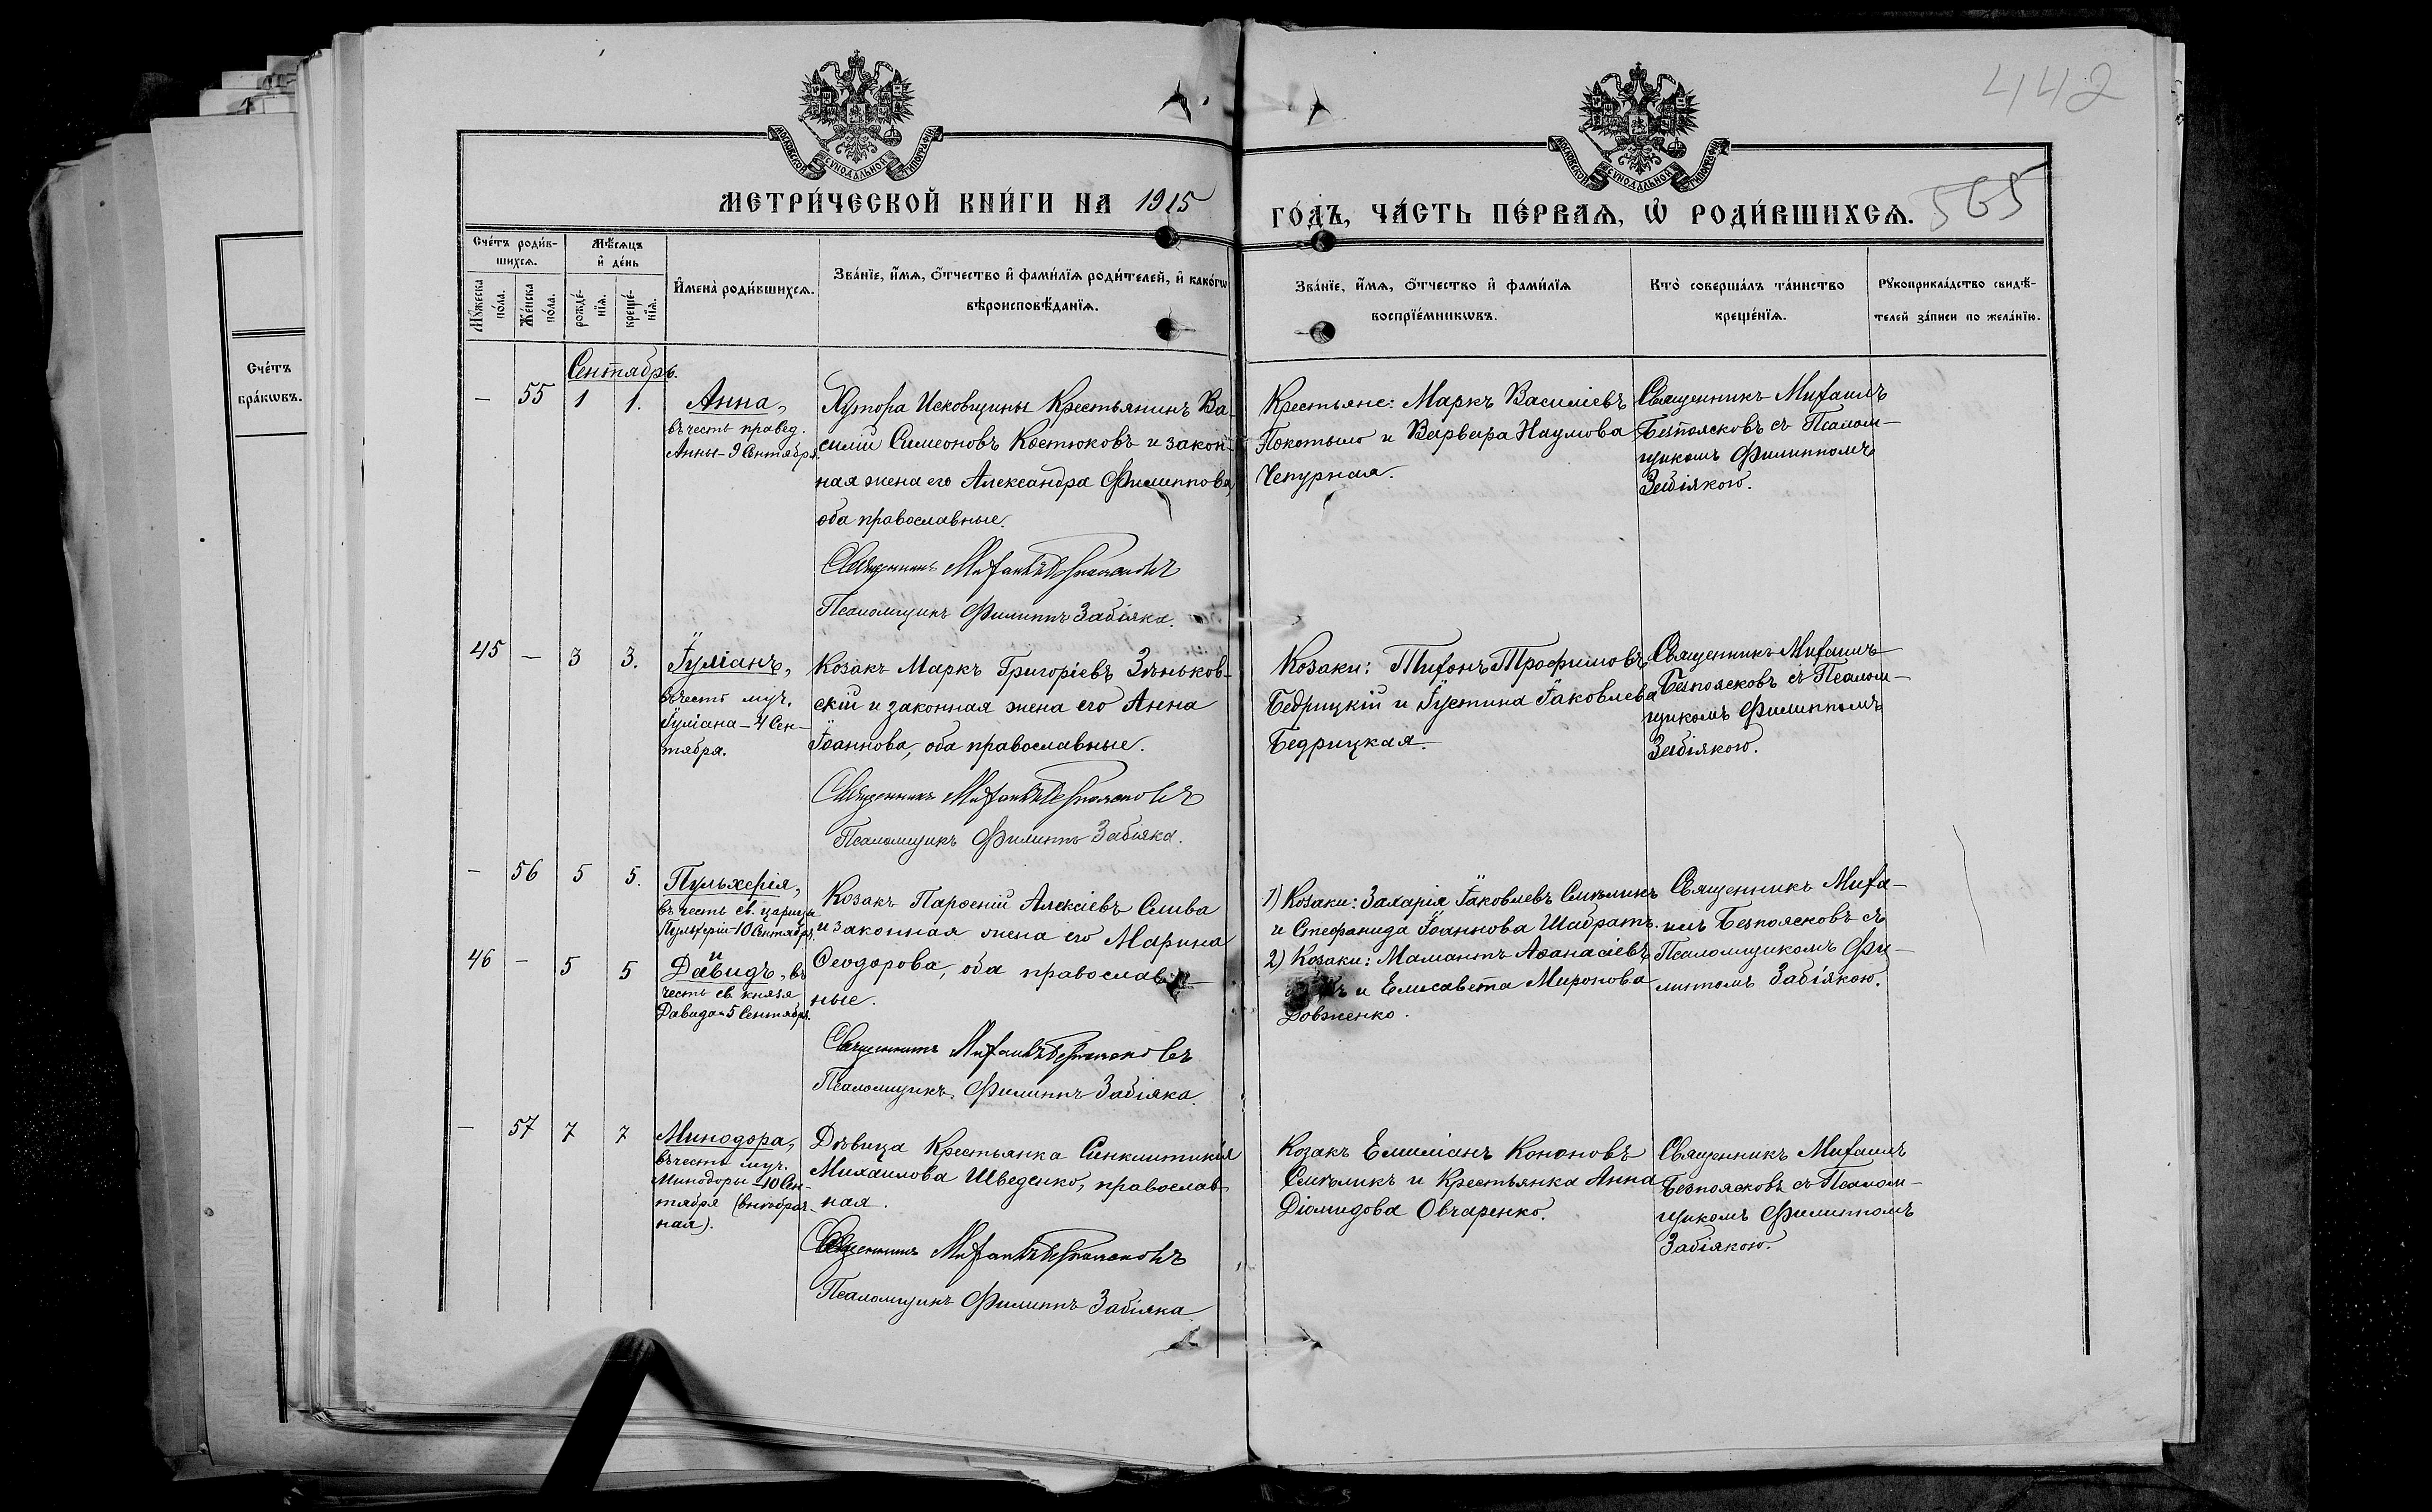 442
МОСКОВСКОЙ СѴНОДАЛЬНОЙ ТИПОГРАФІИ
МОСКОВСКОЙ СѴНОДАЛЬНОЙ ТИПОГРАФІИ
МЕТРИ́ЧЕСКОЙ КНИ́ГИ НА 1915
ГО́ДЪ, ЧА́СТЬ ПЕ́РВАѦ, Ѽ РОДИ́ВШИХСѦ.
565
Сче́тъ
бра́кѡвъ.
Сче́тъ роди́в-
шихсѧ.
Мꙋ́жеска
по́ла.
Же́нска
по́ла.
Мѣ́сѧцъ
и҆ де́нь
рожде́-
нїѧ.
креще́-
нїѧ.
И҆мена̀ роди́вшихсѧ.
Зва́нїе, и҆́мѧ, ѻ҆́тчество и҆ фами́лїѧ роди́телей, и҆ како́гѡ
вѣроисповѣ́данїѧ.
Зва́нїе, и҆́мѧ, ѻ҆́тчество и҆ фами́лїѧ
воспрїе́мникѡвъ.
Кто̀ соверша́лъ та́инство
креще́нїѧ.
Рꙋкоприкла́дство свидѣ́-
телей за́писи по жела́нїю.
Сентябрь.
— 55 1 1.
Анна,
въ честь правед.
Анны – 9 Сентября.
Хутора Исковщины Крестьянинъ Ва-
силій Симеоновъ Костюковъ и закон-
ная жена его Александра Филиппова,
оба православные.
Священникъ Михаилъ Безпоясковъ
Псаломщикъ Филиппъ Забіяка.
Крестьяне: Маркъ Василіевъ
Покотыло и Варвара Наумова
Чепурная.
Священникъ Михаилъ
Безпоясковъ съ Псалом-
щикомъ Филиппомъ
Забіякою.
45 — 3 3.
Іуліанъ,
въ честь муч.
Іуліана – 4 Сен-
тября.
Козакъ Маркъ Григоріевъ Зѣньков-
скій и законная жена его Анна
Іоаннова, оба православные.
Священникъ Михаилъ Безпоясковъ
Псаломщикъ Филиппъ Забіяка.
Козаки: Тихонъ Трофимовъ
Бедрицкій и Іустина Іаковлева
Бедрицкая.
Священникъ Михаилъ
Безпоясковъ съ Псалом-
щикомъ Филиппомъ
Забіякою.
— 56 5 5.
Пульхерія,
въ честь св. царицы
Пульхеріи – 10 Сентября.
и
46 — 5 5
Давидъ, въ
честь св. князя
Давида – 5 Сентября.
Козакъ Парѳеній Алексіевъ Слива
и законная жена его Марина
Ѳеодорова, оба православ-
ные.
Священникъ Михаилъ Безпоясковъ
Псаломщикъ Филиппъ Забіяка.
1) Козаки: Захарія Іаковлевъ Смѣликъ
и Стефанида Іоаннова Шабратъ.
2) Козаки: Мамантъ Аѳанасіевъ
и Елисавета Миронова
Довженко.
Священникъ Миха-
илъ Безпоясковъ съ
Псаломщикомъ Фи-
липпомъ Забіякою.
— 57 7 7
Минодора,
въ честь муч.
Минодоры – 10 Сен-
тября (внѣбрач-
ная).
Дѣвица Крестьянка Синклитикія
Михаилова Шведенко, православ-
ная.
Священникъ Михаилъ Безпоясковъ
Псаломщикъ Филиппъ Забіяка
Козакъ Емиліанъ Кононовъ
Смѣликъ и Крестьянка Анна
Діомидова Овчаренко.
Священникъ Михаилъ
Безпоясковъ съ Псалом-
щикомъ Филиппомъ
Забіякою.